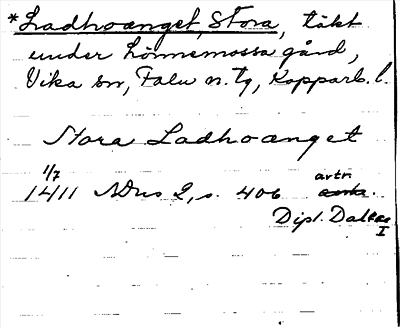 *Ladhoænget, Stora, täkt
under Lönnemossa gård,
Vika sn, Falu n. tg, Kopparb. l.
Stora Ladhoænget
1/7
1411 NDus 2, s. 406 avtr.
Dipl. Dal
I